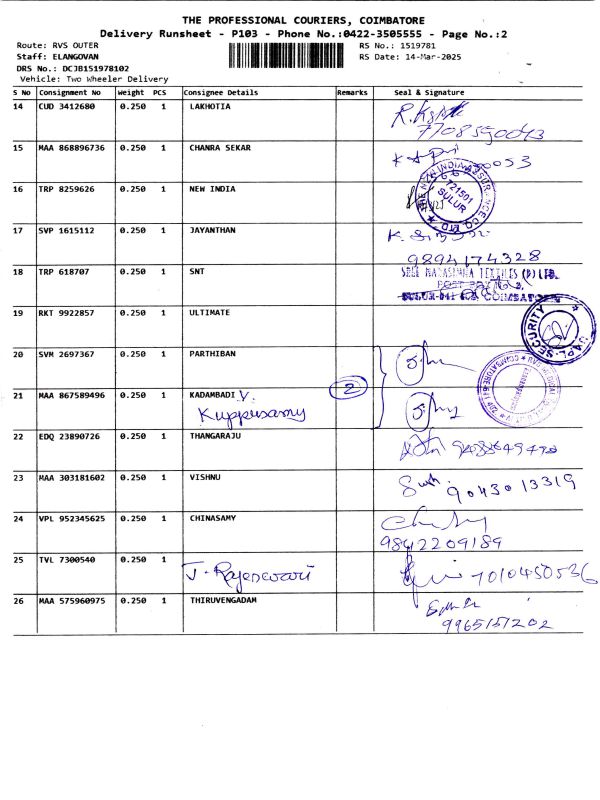 THE PROFESSIONAL COURIERS, COIMBATORE
Delivery Runsheet - P103 - Phone No.:0422-3505555 - Page No.:2
Route: RVS OUTER RS No.: 1519781
Staff: ELANGOVAN RS Date: 14-Mar-2025
DRS No.: DCJB151978102
Vehicle: Two Wheeler Delivery
S No Consignment No Weight PCS Consignee Details Remarks Seal & Signature
14 CUD 3412680 0.250 1 LAKHOTIA
7708590043
15 MAA 868896736 0.250 1 CHANRA SEKAR
16 TRP 8259626 0.250 1 NEW INDIA
721501
SULUR
17 SVP 1615112 0.250 1 JAYANTHAN
9894174328
18 TRP 618707 0.250 1 SNT
TEXTILES (P) LTD.
19 RKT 9922857 0.250 1 ULTIMATE
SECURITY
20 SVM 2697367 0.250 1 PARTHIBAN
21 MAA 867589496 0.250 1 KADAMBADI V.
Kuppusamy
2
22 EDQ 23890726 0.250 1 THANGARAJU
23 MAA 303181602 0.250 1 VISHNU
9043013319
24 VPL 952345625 0.250 1 CHINASAMY
9842209189
25 TVL 7300540 0.250 1 J. Rajeswari
7010450536
26 MAA 575960975 0.250 1 THIRUVENGADAM
9965151202